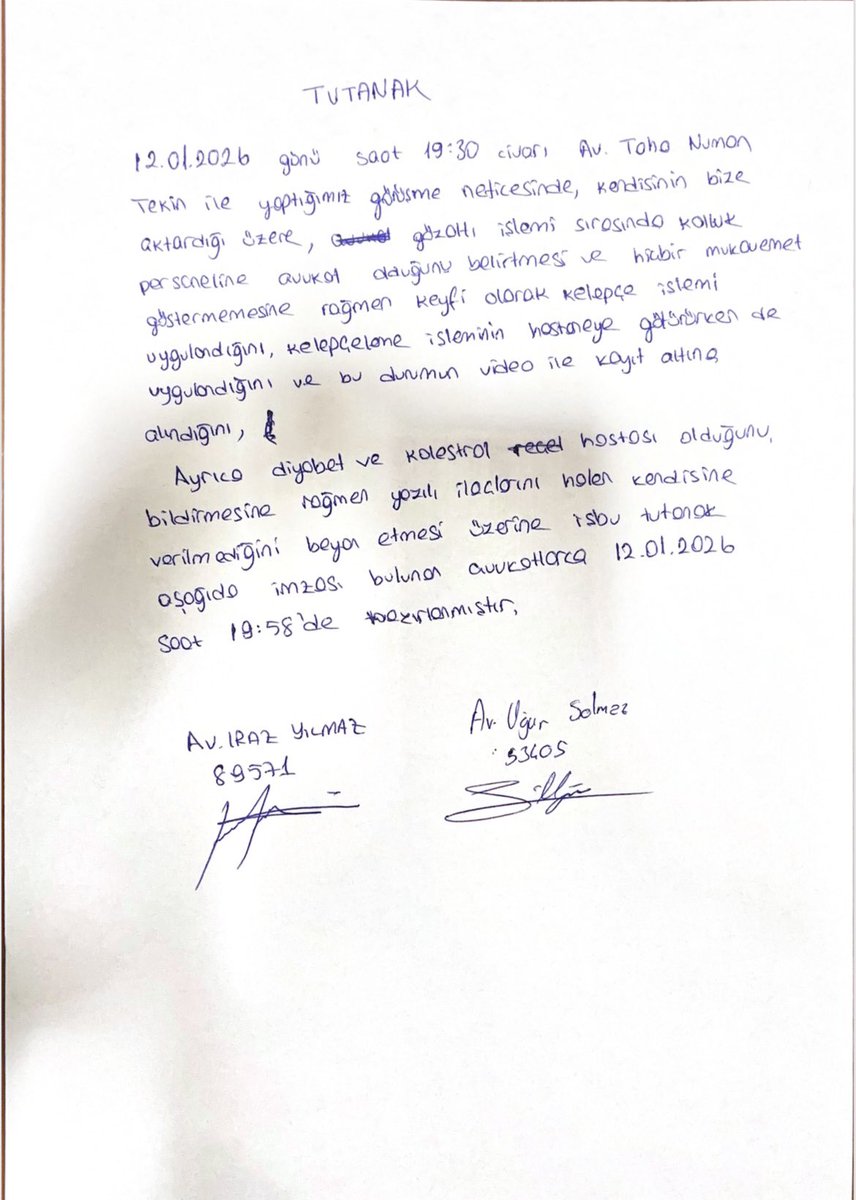 TUTANAK
12.01.2026 günü saat 19:30 civarı Av. Taha Numan
Tekin ile yaptığımız görüşme neticesinde, kendisinin bize
aktardığı üzere, gözaltı işlemi sırasında kolluk
personeline avukat olduğunu belirtmesi ve hiçbir mukavemet
göstermemesine rağmen keyfi olarak kelepçe işlemi
uygulandığını, kelepçeleme işleminin hastaneye götürürken de
uygulandığını ve bu durumun video ile kayıt altına
alındığını,
Ayrıca diyabet ve kolestrol hastası olduğunu,
bildirmesine rağmen yazılı ilaçlarını halen kendisine
verilmediğini beyan etmesi üzerine işbu tutanak
aşağıda imzası bulunan avukatlarca 12.01.2026
saat 19:58'de hazırlanmıştır.
Av. IRAZ YILMAZ
89571
Av. Uğur Solmaz
53405